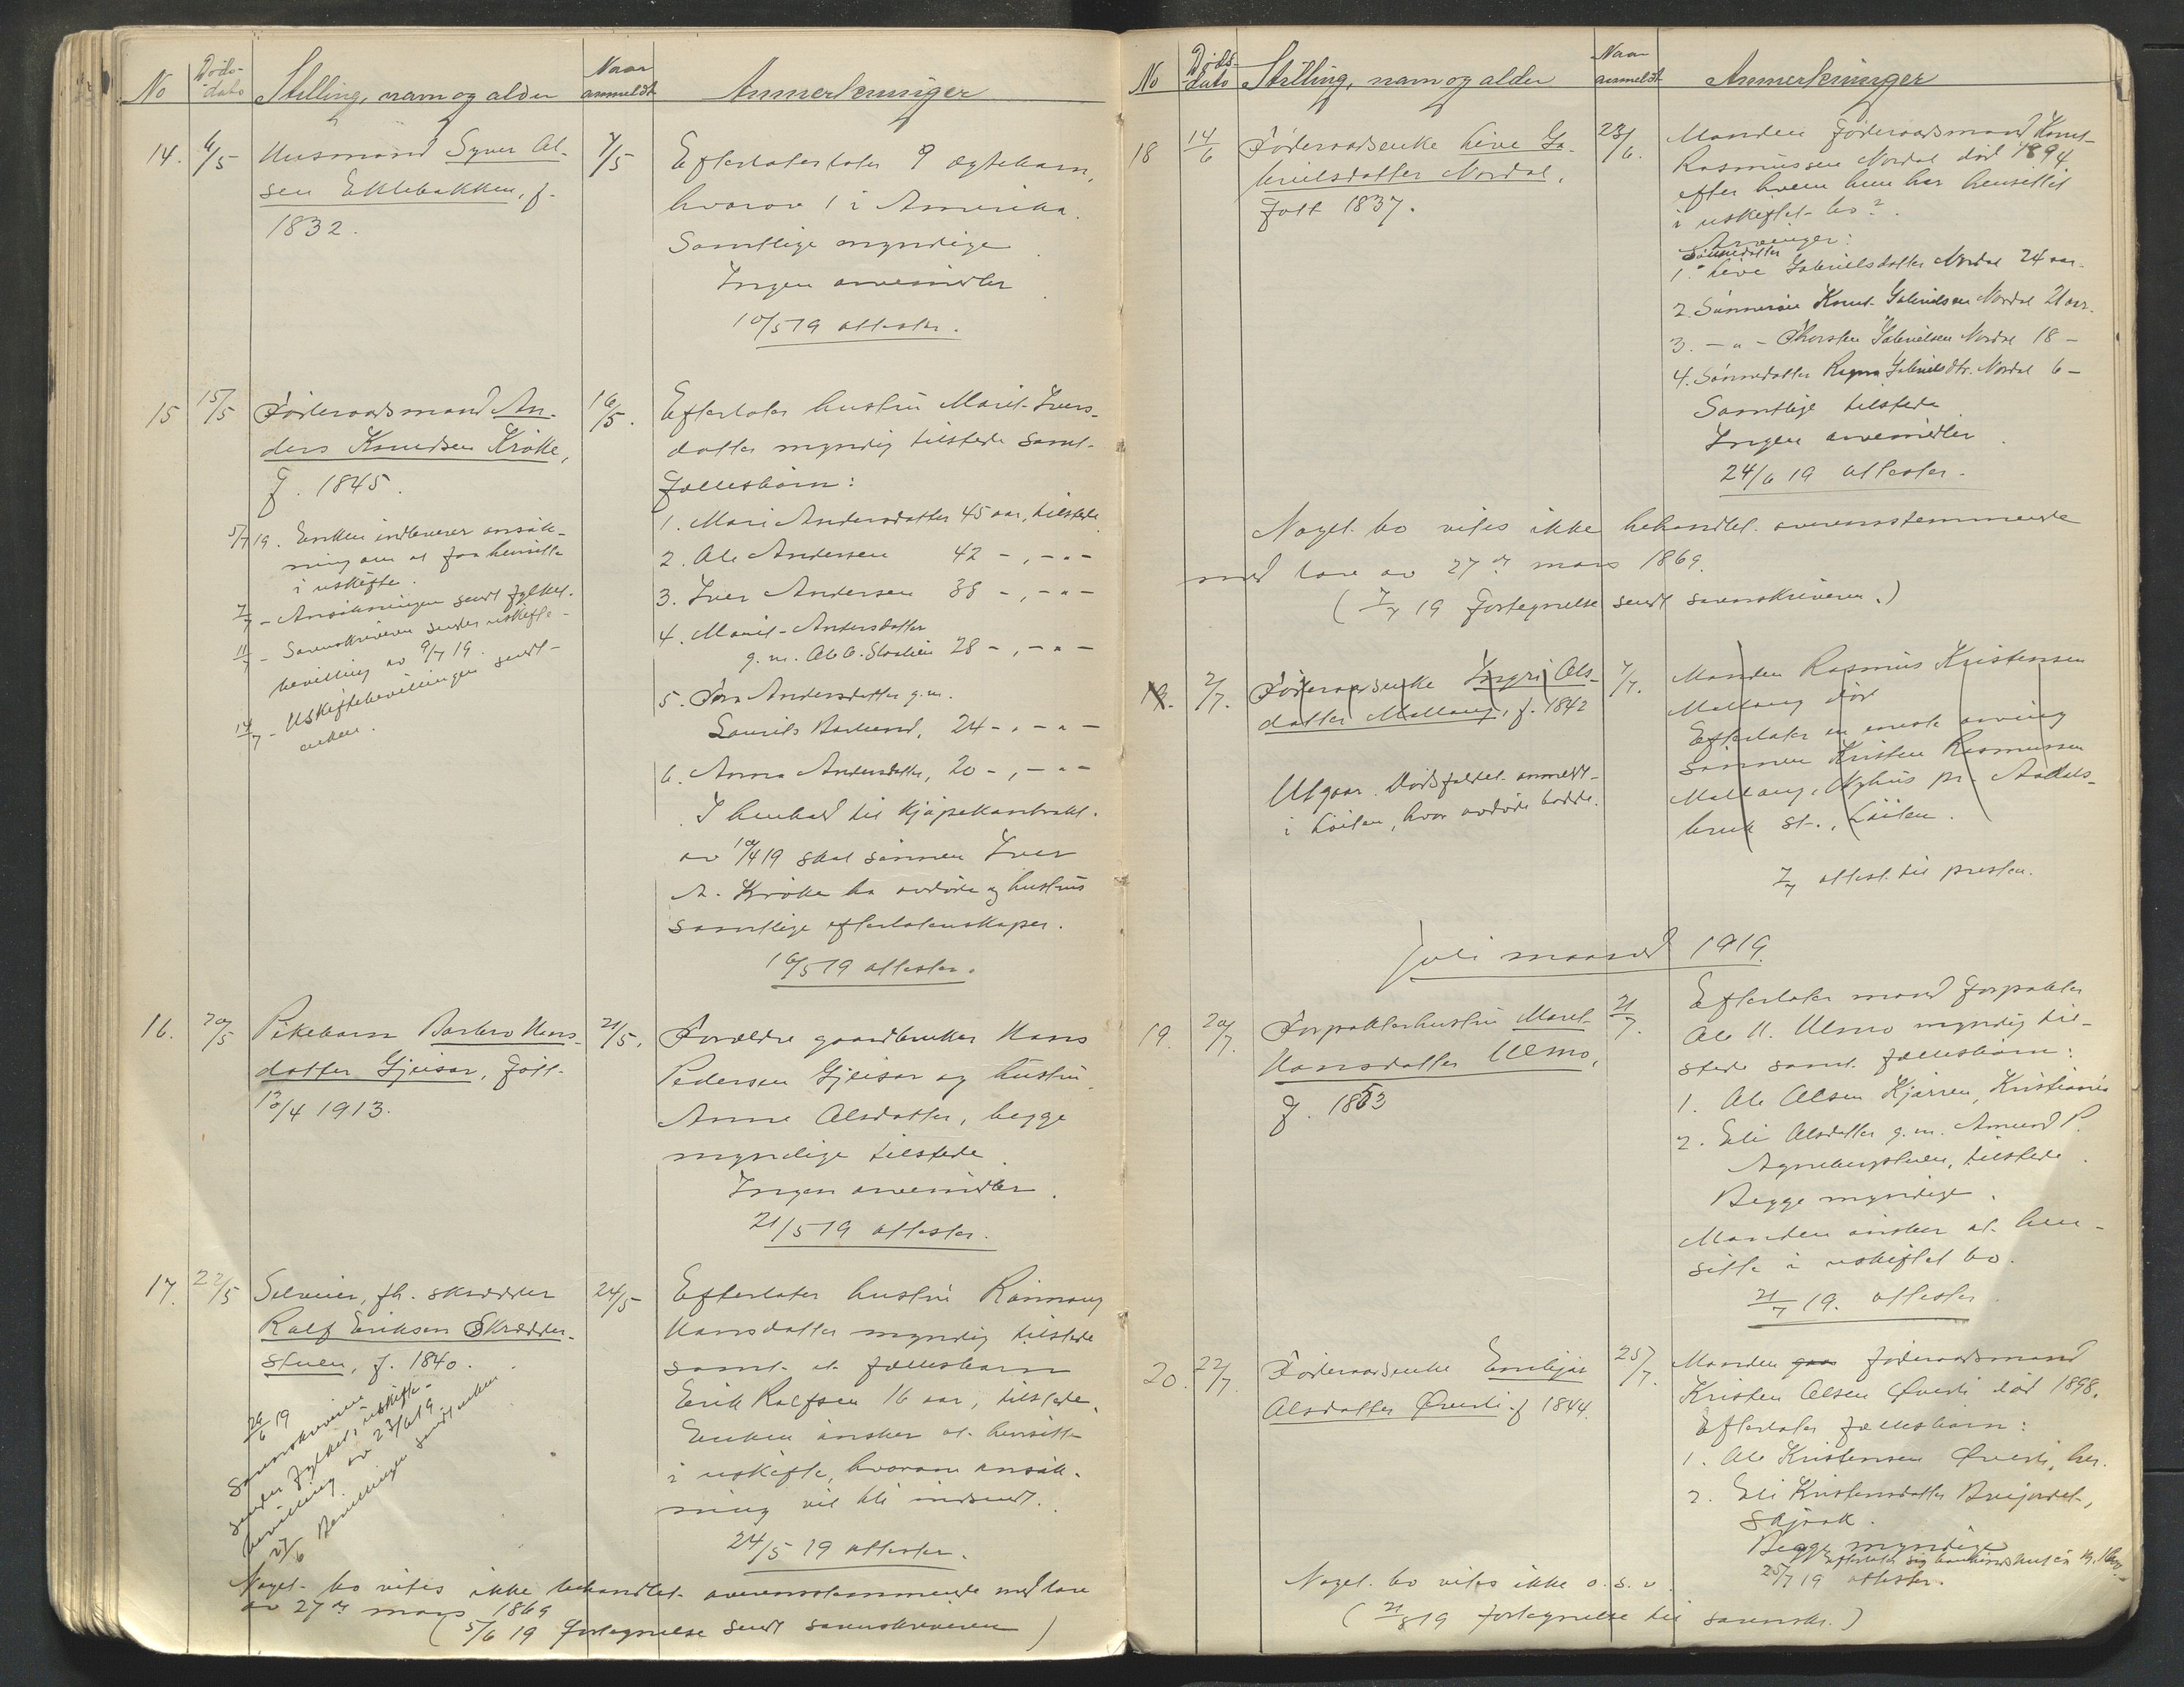 No
Døds-
dato
Stilling, navn og alder
Naar
anmeldt
Anmerkninger
14.
6/5
Husmand Syver Ol-
sen Eklebakken, f.
1832.
7/5
Efterlater 9 egtebarn,
hvorav 1 i Amerika.
Samtlige myndige
Ingen arvemidler
10/5 19 attester.
15
15/5
Føderaadsmand An-
ders Knudsen Kröke,
f. 1845.
5/7 19. Enken indleverer ansøk-
ning om at faa hensitte
i uskifte.
7/7 - Ansøkningen sendt fylket.
11/7 - Sorenskriveren sender uskifte-
bevilling av 9/7 19.
14/7 - Uskiftebevillingen sendt
enken.
16/5.
Efterlater hustru Marit Ivers-
datter myndig tilstede samt
fællesbørn:
1. Mari Andersdatter 45 aar, tilstede
2. Ole Andersen 42 - , - " -
3. Iver Andersen 38 - , - " -
4. Marit Andersdatter
g. m. Ole O. 28 - , - " -
5. Andersdatter g. m.
Laurits 24 - , - " -
6. Anna Andersdatter, 20 - , - " -
I henhold til kjøpekontrakt
av 10/4 19 skal sønnen Iver
A. Kröke ha avdøde og hustrus
samtlige efterlatenskaper.
16/5 19 attester.
16.
20/5
Pikebarn Barbro Hans-
datter Gjeisar, født
13/4 1913.
21/5.
Forældre gaardbruker Hans
Pedersen Gjeisar og hustru
Anne Olsdatter, begge
myndige tilstede
Ingen arvemidler.
21/5 19 attester.
17.
22/5
Selveier, fh. skrædder
Ralf Eriksen Skrædder-
stuen, f. 1840.
26/6 19
Sorenskriveren
sender fylkets uskifte-
bevilling av 23/6 19.
27/6 Bevillingen sendt enken.
24/5
Efterlater hustru Rønnaug
Hansdatter myndig tilstede
samt et fællesbarn
Erik Ralfsen 16 aar, tilstede.
Enken ønsker at hensitte
i uskifte, hvorom ansøk-
ning vil bli indsendt.
24/5 19 attester.
Noget bo vites ikke behandlet overensstemmende med lov
av 27de mars 1869
(5/6 19 fortegnelse sendt sorenskriveren)
No
Døds-
dato
Stilling, navn og alder
Naar
anmeldt
Anmerkninger
18
14/6
Føderaadsenke Live Ga-
brielsdatter Nordal,
født 1837.
23/6.
Manden føderaadsmand Knut
Rasmussen Nordal død 1894
efter hvem hun har hensittet
i uskiftet bo?
Arvinger:
Sønnedatter
1. Live Gabrielsdatter Nordal 24 aar.
2. Sønnesøn Knut Gabrielsen Nordal 21 aar.
3. - " - Thorsten Gabrielsen Nordal 18 -
4. Sønnedatter Ragna Gabrielsdtr. Nordal 6 -
Samtlige tilstede
Ingen arvemidler.
24/6 19 attester.
Noget bo vites ikke behandlet overensstemmende
med lov av 27de mars 1869.
(7/7 19 fortegnelse sendt sorenskriveren.)
19.
2/7.
Føderaadsenke Ingri Ols-
datter Mellang, f. 1842
Utgaar. Dødsfaldet anmeldt
i Løiten, hvor avdøde bodde.
7/7.
Manden Rasmus Kristensen
Mellang død
Efterlater en eneste arving
sønnen Kristen Rasmussen
Mellang, Nyhus pr. Aadals-
bruk st., Løiten.
7/7 attest til presten.
Juli maaned 1919.
19.
20/7.
Forpakterhustru Marit
Hansdatter Ulmo,
f. 1853
21/7.
Efterlater mand forpakter
Ole H. Ulmo myndig til-
stede samt fællesbørn:
1. Ole Olsen Kjørren, Kristiania
2. Eli Olsdatter g. m. Amund P.
tilstede.
Begge myndige.
Manden ønsker at hen-
sitte i uskiftet bo.
21/7 19. attester
20.
22/7.
Føderaadsenke Embjør
Olsdatter Øverli f 1844.
25/7.
Manden gaar føderaadsmand
Kristen Olsen Øverli død 1898.
Efterlater fællesbørn:
1. Ole Kristensen Øverli, her.
2. Eli Kristensdatter Breijordet,
Skjaak.
Begge myndige
25/7 19 attester.
Noget bo vites ikke o. s. v.
(21/8 19 fortegnelse til sorenskr.)